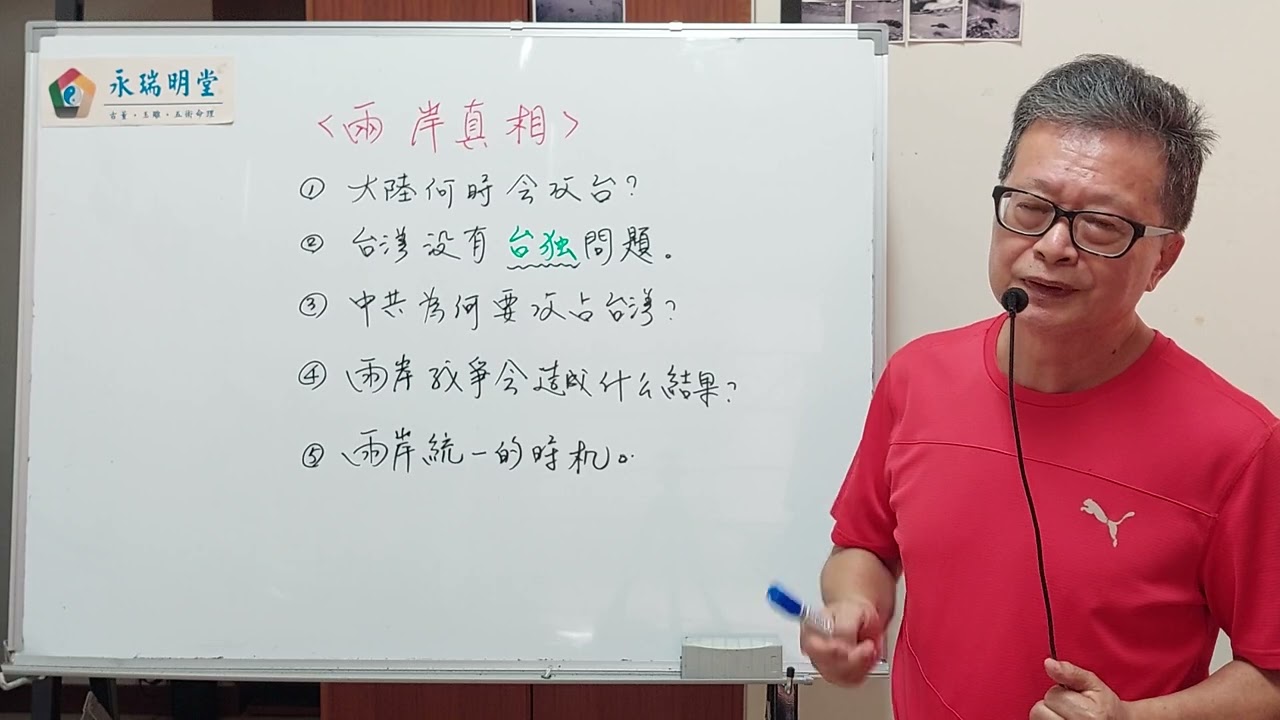 永瑞明堂
古董・玉雕・五術命理
<兩岸真相>
① 大陸何時会攻台?
② 台湾没有台独問題。
③ 中共為何要攻占台湾?
④ 兩岸战爭会造成什么結果?
⑤ 兩岸統一的時机。